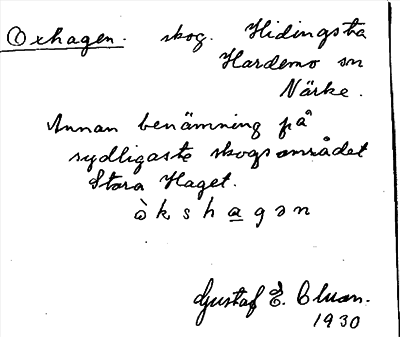 Oxhagen. skog. Hidingsta
Hardemo sn
Närke.
Annan benämning på
sydligaste skogsområdet
Stora Haget.
òkshagən
Gustaf E.
1930